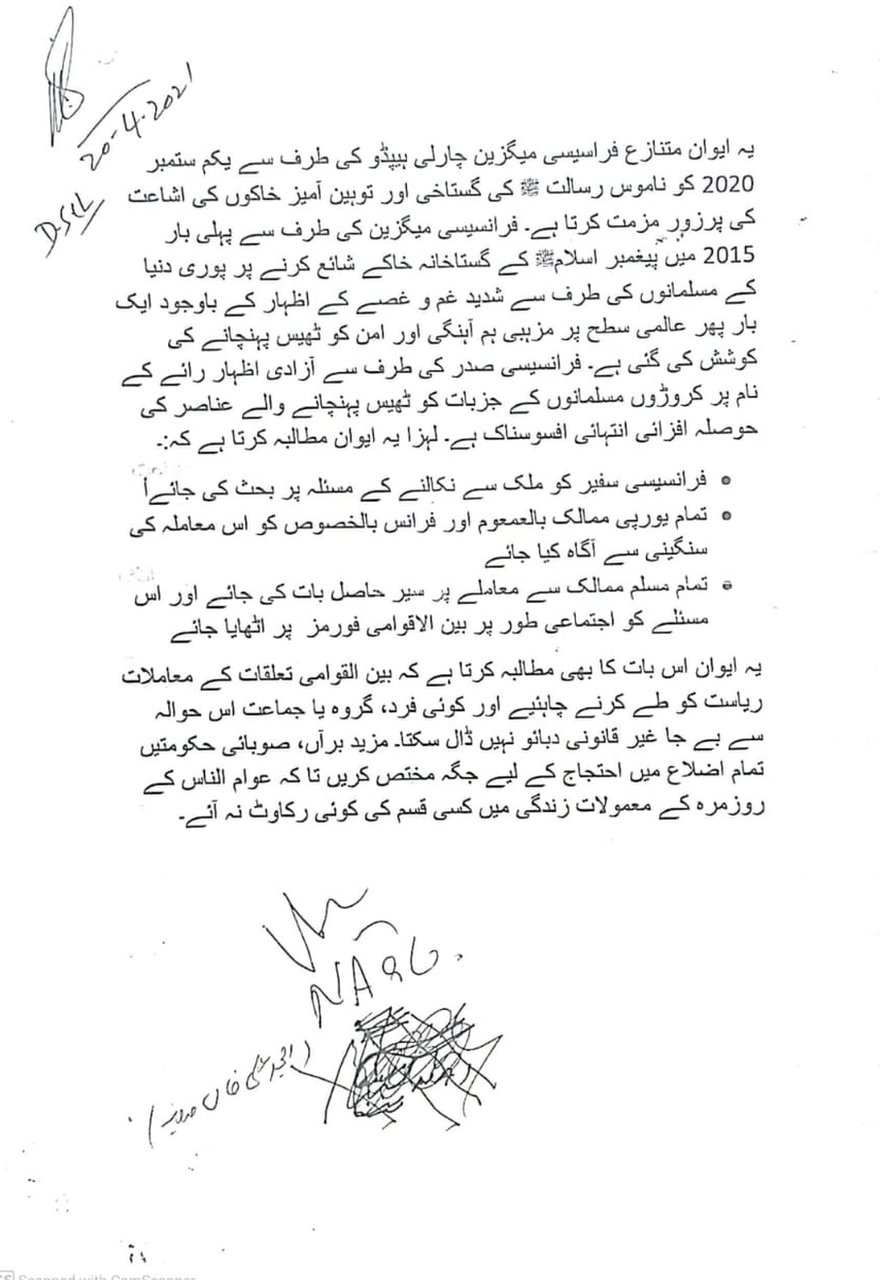 20-4-2021
یہ ایوان متنازع فراسیسی میگزین چارلی ہیپڈو کی طرف سے یکم ستمبر
2020 کو ناموس رسالت ﷺ کی گستاخی اور توہین آمیز خاکوں کی اشاعت
کی پرزور مزمت کرتا ہے۔ فرانسیسی میگزین کی طرف سے پہلی بار
2015 میں پیغمبر اسلامﷺ کے گستاخانہ خاکے شائع کرنے پر پوری دنیا
کے مسلمانوں کی طرف سے شدید غم و غصے کے اظہار کے باوجود ایک
بار پھر عالمی سطح پر مزہبی ہم آہنگی اور امن کو ٹھیس پہنچانے کی
کوشش کی گئی ہے۔ فرانسیسی صدر کی طرف سے آزادی اظہار رائے کے
نام پر کروڑوں مسلمانوں کے جزبات کو ٹھیس پہنچانے والے عناصر کی
حوصلہ افزائی انتہائی افسوسناک ہے۔ لہزا یہ ایوان مطالبہ کرتا ہے کہ:۔
• فرانسیسی سفیر کو ملک سے نکالنے کے مسئلہ پر بحث کی جائےأ
• تمام یورپی ممالک بالعمعوم اور فرانس بالخصوص کو اس معاملہ کی
سنگینی سے آگاہ کیا جائے
• تمام مسلم ممالک سے معاملے پر سیر حاصل بات کی جائے اور اس
مسئلے کو اجتماعی طور پر بین الاقوامی فورمز پر اٹھایا جائے
یہ ایوان اس بات کا بھی مطالبہ کرتا ہے کہ بین القوامی تعلقات کے معاملات
ریاست کو طے کرنے چاہئیے اور کوئی فرد، گروہ یا جماعت اس حوالہ
سے بے جا غیر قانونی دبائو نہیں ڈال سکتا۔ مزید برآں، صوبائی حکومتیں
تمام اضلاع میں احتجاج کے لیے جگہ مختص کریں تا کہ عوام الناس کے
روزمرہ کے معمولات زندگی میں کسی قسم کی کوئی رکاوٹ نہ آئے۔
(امجد علی خان
Scanned with CamScanner